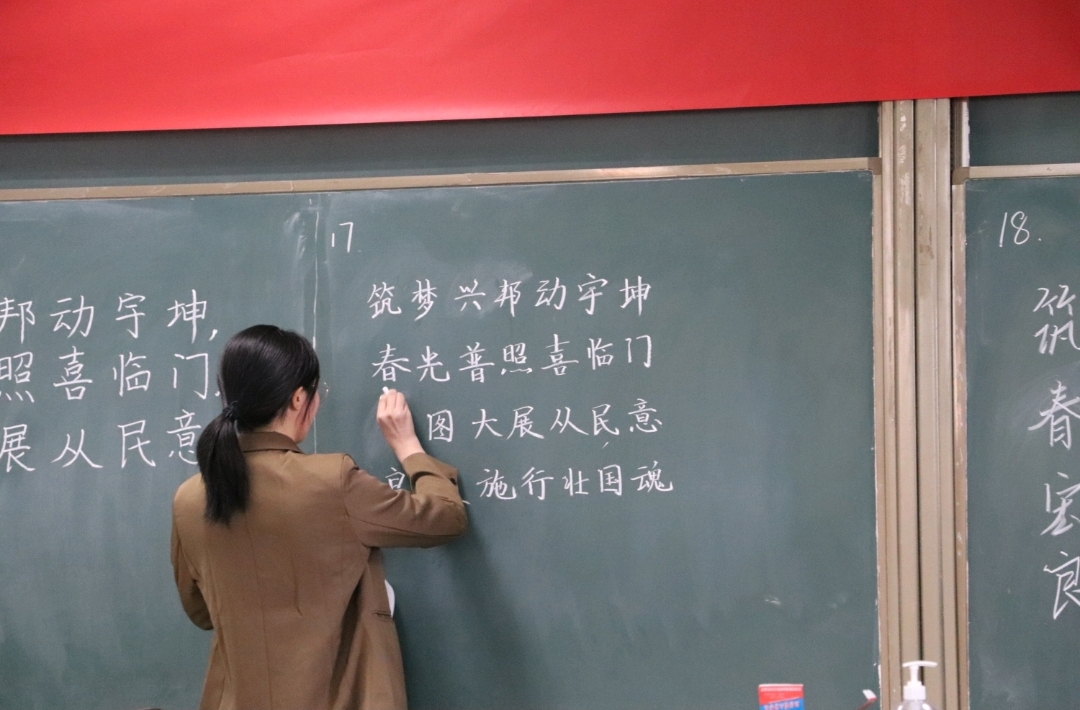 邦动宇坤,
照喜临门
展从民意
17
筑梦兴邦动宇坤
春光普照喜临门
图大展从民意
施行壮国魂
18.
筑
春
宏
良